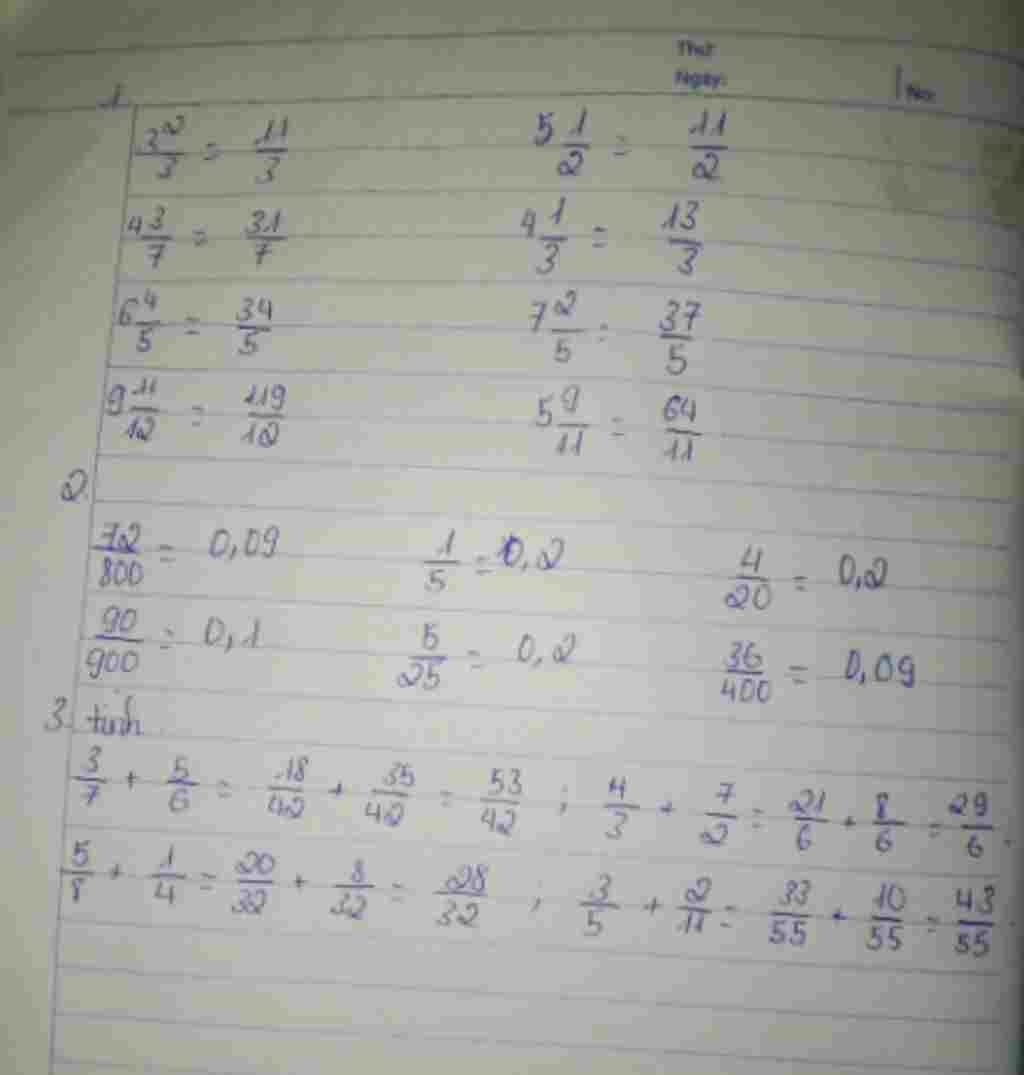 Thứ
Ngày: No:
1.
3 2/3 = 11/3 5 1/2 = 11/2
4 3/7 = 31/7 4 1/3 = 13/3
6 4/5 = 34/5 7 2/5 = 37/5
9 11/12 = 119/12 5 9/11 = 64/11
2.
72/800 = 0,09 1/5 = 0,2 4/20 = 0,2
90/900 = 0,1 5/25 = 0,2 36/400 = 0,09
3. tính
3/7 + 5/6 = 18/42 + 35/42 = 53/42 ; 4/3 + 7/2 = 21/6 + 8/6 = 29/6 .
5/8 + 1/4 = 20/32 + 8/32 = 28/32 ; 3/5 + 2/11 = 33/55 + 10/55 = 43/55 .